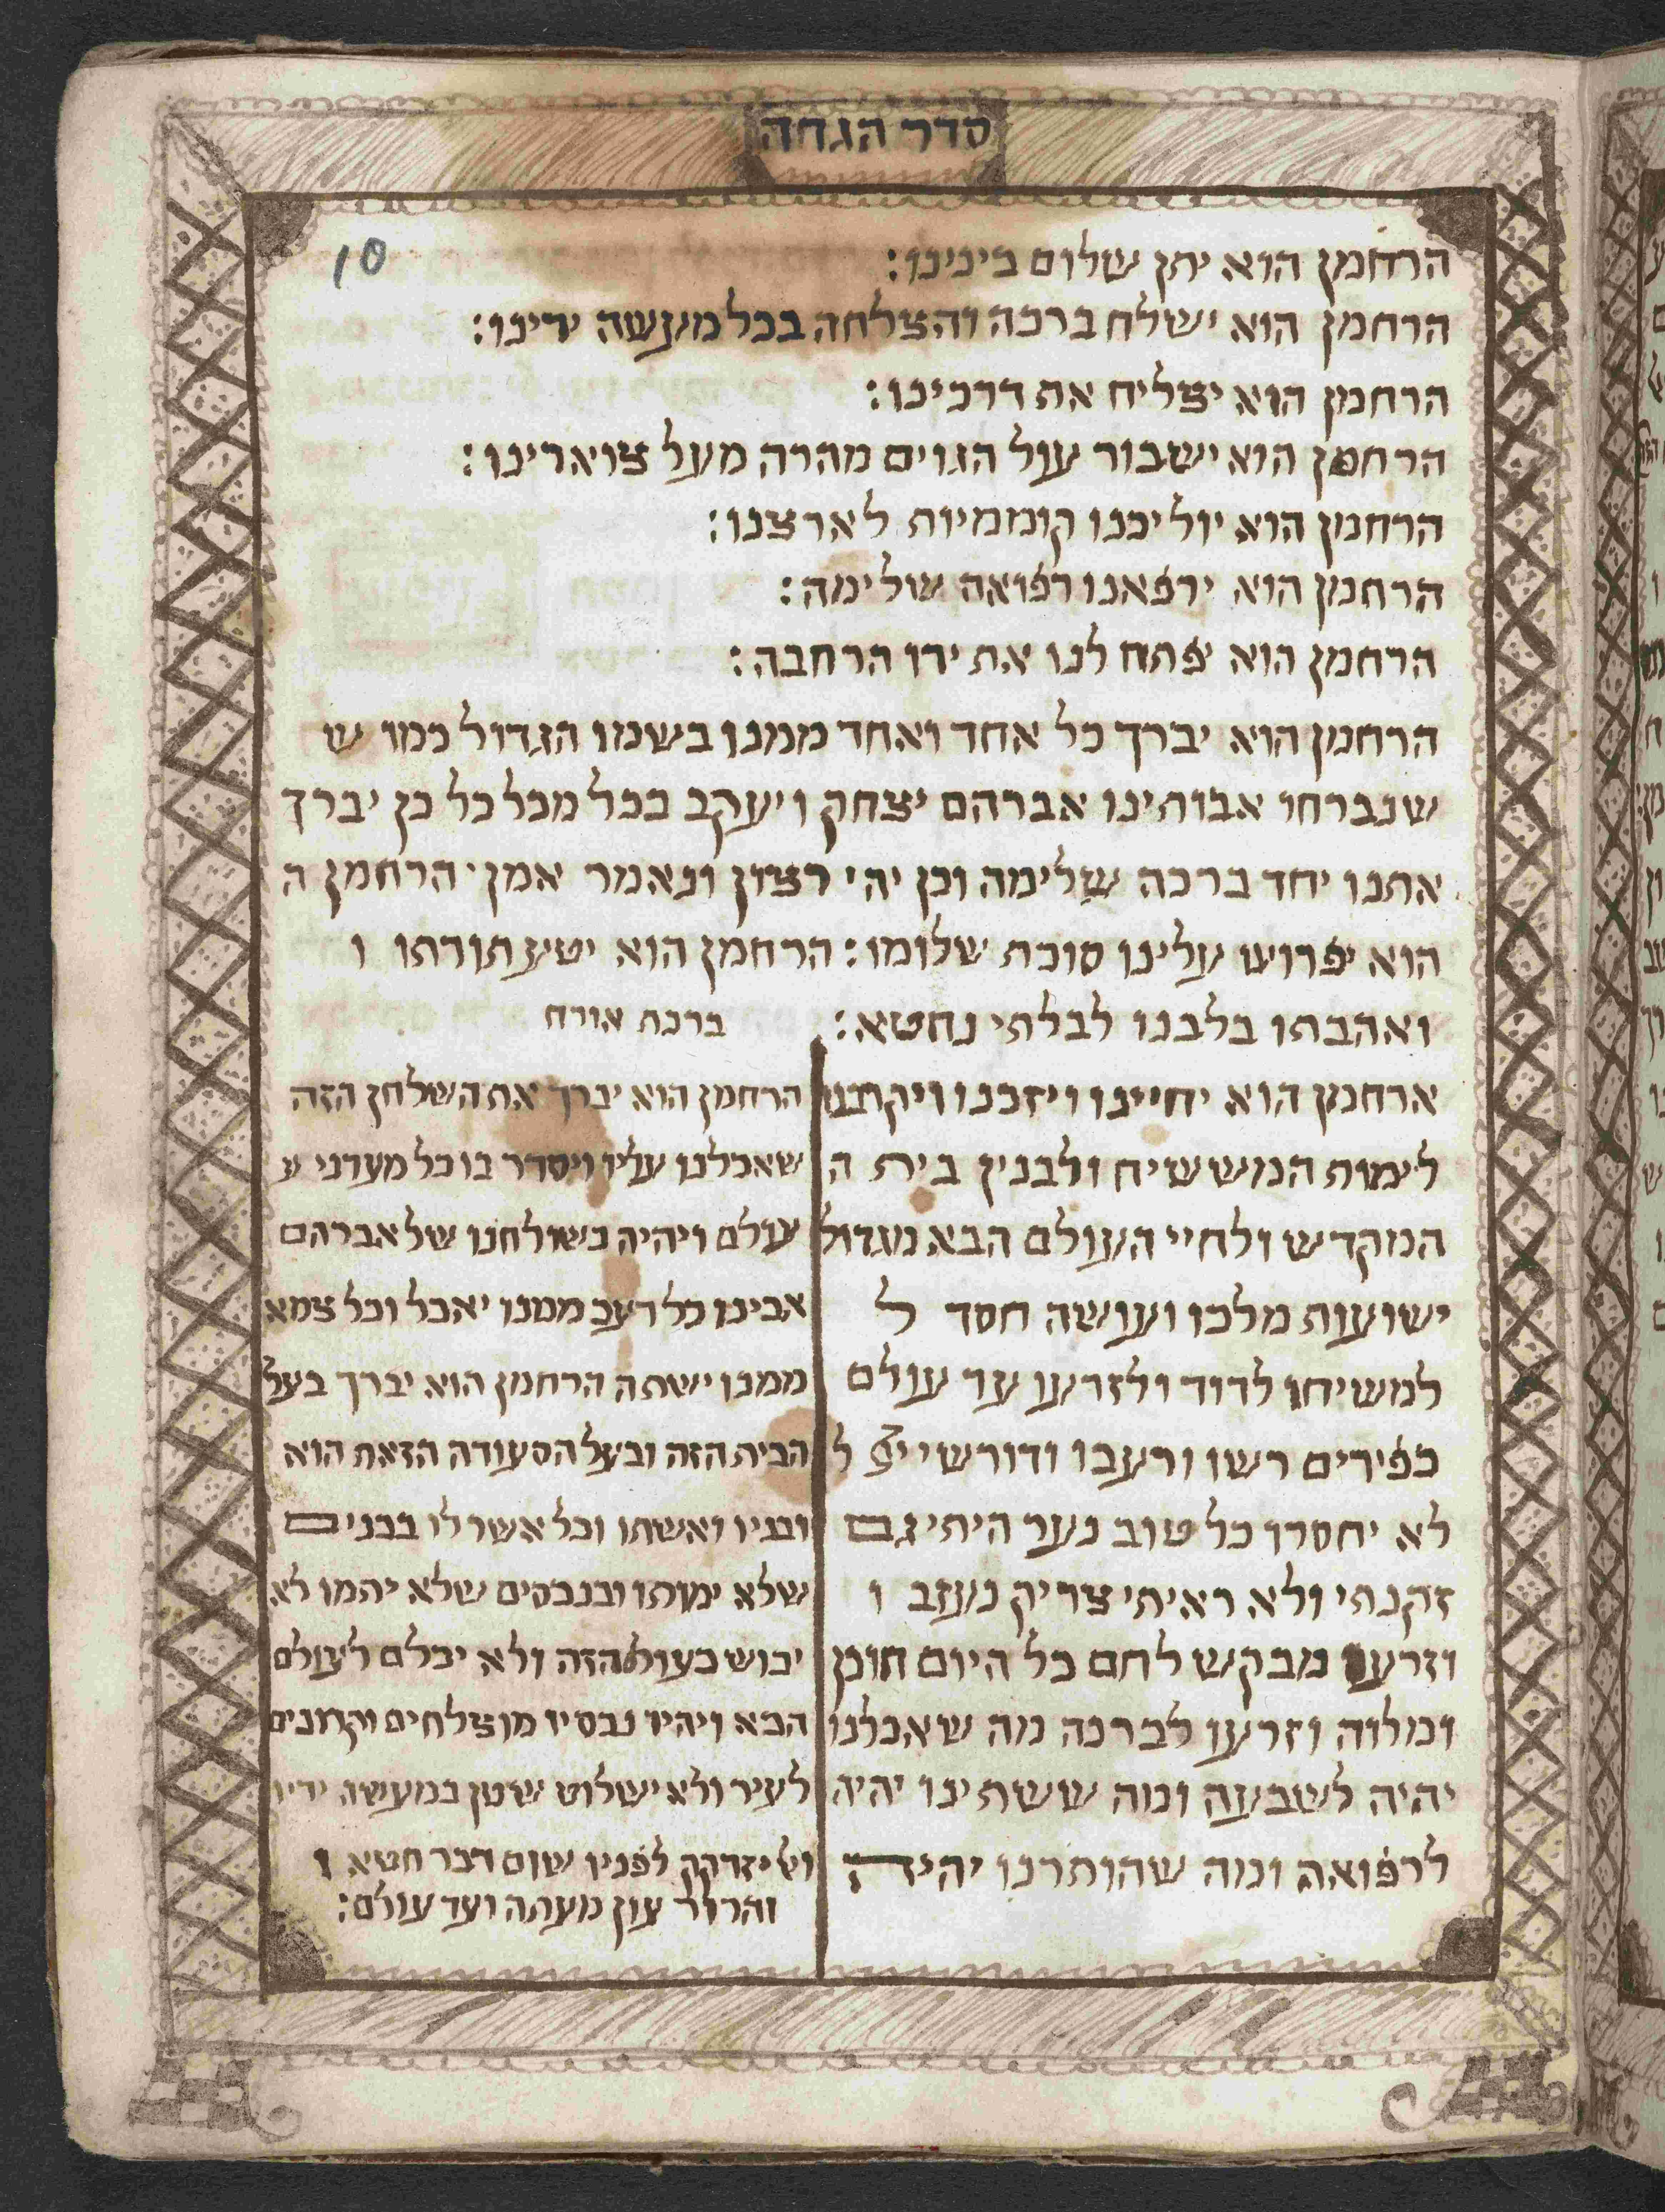 סדר הגדה
10
הרחמן הוא יתן שלום בינינו:
הרחמן הוא ישלח ברכה והצלחה בכל מעשה ידינו:
הרחמן הוא יצליח את דרכינו:
הרחמן הוא ישבור עול הגוים מהרה מעל צוארינו:
הרחמן הוא יוליכנו קוממיות לארצנו:
הרחמן הוא ירפאנו רפואה שלימה:
הרחמן הוא יפתח לנו את ידו הרחבה:
הרחמן הוא יברך כל אחד ואחד ממנו בשמו הגדול כמו ש
שנברחו אבותינו אברהם יצחק ויעקב בכל מכל כל כן יברך
אתנו יחד ברכה שלימה וכן יהי רצון ונאמר אמן· הרחמן ה
הוא יפרוש עלינו סוכת שלומו: הרחמן הוא יטע תורתו ו
ואהבתו בלבנו לבלתי נחטא:
ארחמן הוא יחיינו ויזכנו ויקרבנו
לימות המששיח ולבנין בית ה
המקדש ולחיי העולם הבא מגדול
ישועות מלכו ועושה חסד ל
למשיחו לדוד ולזרעו עד עולם
כפירים רשו ורעבו ודורשי ל
לא יחסרו כל טוב נער הייתי גם
זקנתי ולא ראיתי צדיק נעזב ו
וזרעו מבקש לחם כל היום חונן
ומלוה וזרעו לברכה מה שאכלנו
יהיה לשבעה ומה ששתינו יהיה
לרפואה ומה שהותרנו יהיה
ברכת אורח
הרחמן הוא יברך את השלחן הזה
שאכלנו עליו ויסדר בו כל מעדני ע
עולם ויהיה כשולחנו של אברהם
אבינו כל רעב ממנו יאכל וכל צמא
ממנו ישתה הרחמן הוא יברך בעל
הבית הזה ובעל הסעודה הזאת הוא
ובניו ואשתו וכל אשר לו בבנים
שלא ימותו ובנכסים שלא יהמו לא
יבוש בעול הזה ולא יכלם לעולם
הבא ויהיו נכסיו מוצלחים וקרובים
לעיר ולא ישלוט שטן במעשה ידיו
ול יזדקק לפניו שום דבר חטא ו
והרור עון מעתה ועד עולם: